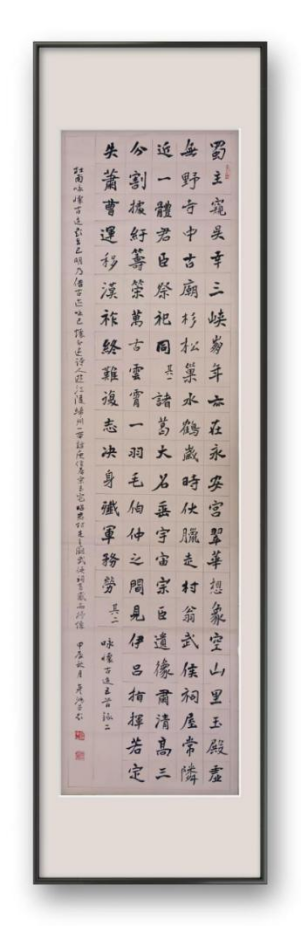 蜀主窺吳幸三峽崩年亦在永安宮翠華想象空山里玉殿虛
無野寺中古廟杉松巢水鶴歲時伏臘走村翁武侯祠屋常隣
近一體君臣祭祀同 其一 諸葛大名垂宇宙宗臣遺像肅清高三
分割據紆籌策萬古雲霄一羽毛伯仲之間見伊呂指揮若定
失蕭曹運移漢祚終難複志決身殲軍務勞 其二 詠懷古迹五首錄二
杜甫詠懷古迹 甲辰秋月